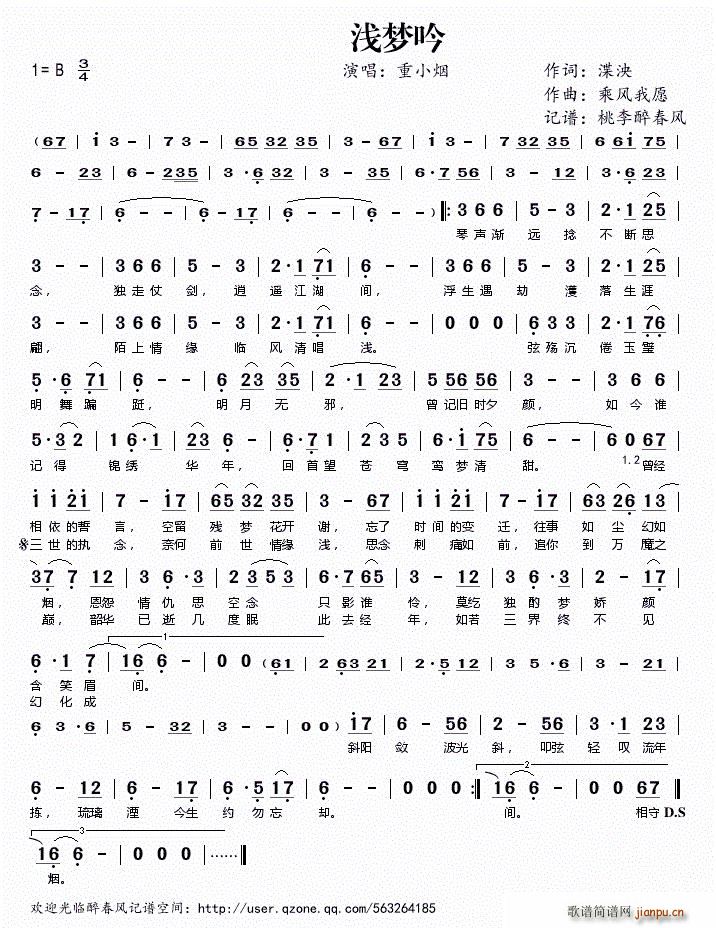 浅梦吟
1=B 3/4 演唱：重小烟 作词：渫泱
作曲：乘风我愿
记谱：桃李醉春风
( 67 | i 3 - | 7 3 - | 65 32 35 | 3 - - | 3 - 67 | i 3 - | 7 3 - | 2·5 35 | 3 - - | 6 6i 75 |
6 - 23 | 6 - 235 | 3·6 32 | 3 - 35 | 6·7 56 | 3 - 12 | 3·6 23 |
7 - 17 | 6 - - | 6 - 17 | 6 - - | 6 - - ) ‖: 3 6 6 | 5 - 3 | 2·1 25 |
琴声渐 远捻 不断思
3 - - | 3 6 6 | 5 - 3 | 2·1 71 | 6 - - | 3 6 6 | 5 - 3 | 2·1 25 |
念， 独走仗 剑，逍 遥江湖 间， 浮生遇 劫 濩 落生涯
3 - - | 3 6 6 | 5 - 3 | 2·1 71 | 6 - - | 0 0 0 | 6 5 3 | 2·1 76 |
翩， 陌上情 缘 临 风清唱 浅。 弦殇沉 倦玉璧
5·6 71 | 6 - - | 6 23 35 | 2·1 23 | 3 56 56 | 3 - - | 3 6 6 |
明舞蹁 跹， 明月无 邪， 曾记旧时夕 颜， 如今谁
5·3 2 | 1 6·1 | 23 6 - | 6·1 5 | 2 3 5 | 6·i 75 | 6 - - | 6 0 67 |
记得 锦绣 华年， 回首望 苍穹 鸾梦清 甜。 1.2 曾经
i i 2i | 7 - i7 | 65 32 35 | 3 - 67 | i i 2i | 7 - i7 | 63 23 26 | 1 3 -
相依的誓 言，空留 残梦花开 谢，忘了 时间的变 迁，往事 如尘幻如
𝄋三世的执 念，奈何 前世情缘 浅，思念 刺痛如 前，追你 到万魔之
37 7 12 | 3 6 3 | 2 3 5 3 | 6·7 65 | 3 - 12 | 3 6 3 | 2 - 17 |
烟，恩怨 情仇思 空念 只影谁 怜，莫纥 独酌梦 娇颜
巅，韶华 已逝几 度眠 此去经 年，如若 三界终 不见
6·1 7 | 16 6 - | 0 0 (61 | 2 63 21 | 2·5 12 | 3 - 23 |
含笑眉 间。
幻化成
6 3·6 | 5 - 32 | 3 - - | 0 0 ) 17 | 6 - 56 | 2 - 56 | 3·1 23 |
斜阳 敛 波光 斜，叩弦 轻叹流年
6 - 12 | 3 - 12 | 6 - 17 | 6·5 17 | 6 - - | 0 0 0 :‖ 16 6 - | 0 0 0 | 0 0 67 ‖
拣，琉璃 湮 今生 约勿忘 却。 间。 相守 D.S
16 6 - | 0 0 0 | ······ ‖
烟。
欢迎光临醉春风记谱空间：http://user.qzone.qq.com/563264185
歌谱简谱网
jianpu.cn